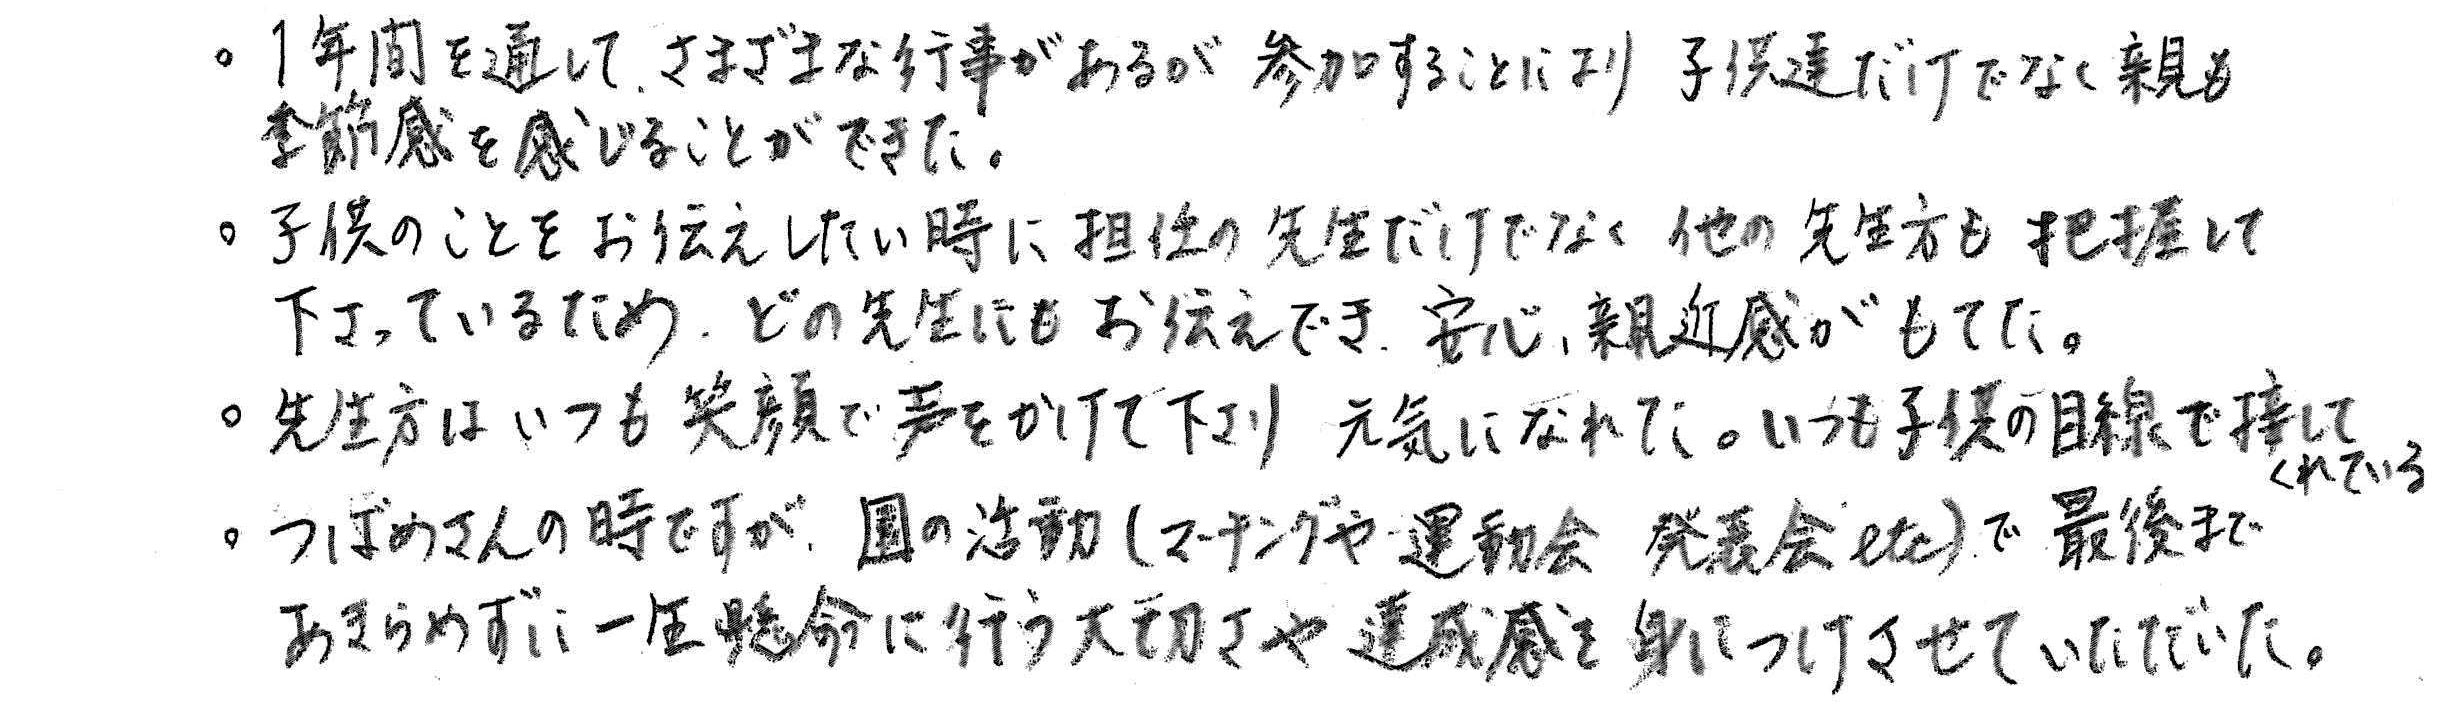 。1年間を通して、さまざまな行事があるが 参加することにより 子供達だけでなく親も
季節感を感じることができた。
。子供のことをお伝えしたい時に担任の先生だけでなく 他の先生方も 把握して
下さっているため、どの先生にもお伝えでき、安心、親近感がもてた。
。先生方はいつも笑顔で声をかけて下さり 元気になれた。いつも子供の目線で接して
くれている
。つばめさんの時ですが、園の活動(マーチングや運動会 発表会etc)で 最後まで
あきらめずに一生懸命に行う大切さや達成感を身につけさせていただいた。